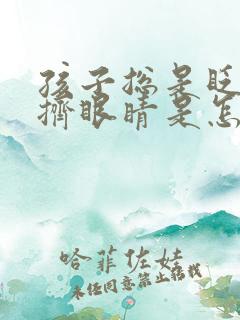 孩子总是眨
挤眼睛是怎
哈菲佐娃
未经同意禁止搭载